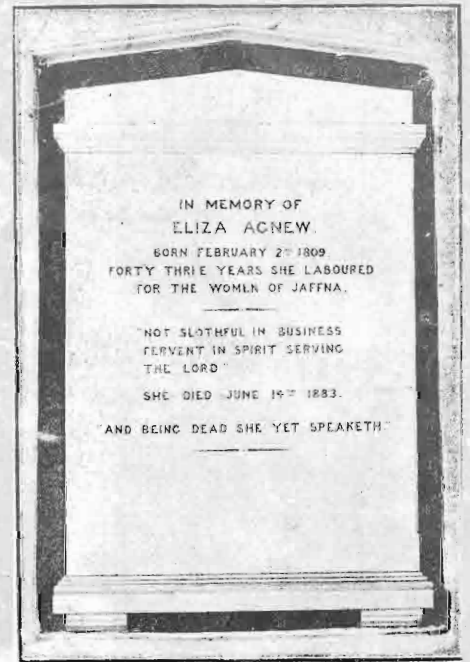 IN MEMORY OF
ELIZA AGNEW.
BORN FEBRUARY 2ND 1809
FORTY THREE YEARS SHE LABOURED
FOR THE WOMEN OF JAFFNA.
"NOT SLOTHFUL IN BUSINESS
FERVENT IN SPIRIT SERVING
THE LORD"
SHE DIED JUNE 14TH 1883.
"AND BEING DEAD SHE YET SPEAKETH."